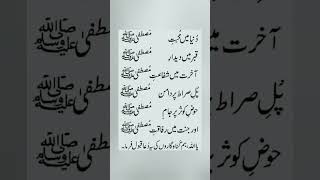 دُنیا میں مُحبتِ مُصطفیٰ ﷺ
قبر میں دیدارِ مُصطفیٰ ﷺ
آخرت میں شفاعتِ مُصطفیٰ ﷺ
پُل صراط پر دامنِ مُصطفیٰ ﷺ
حوضِ کوثر پر جامِ مُصطفیٰ ﷺ
اور جنت میں رفاقتِ مُصطفیٰ ﷺ
یا اللہ! ہم گناہگاروں کی یہ دُعا قبول فرما۔